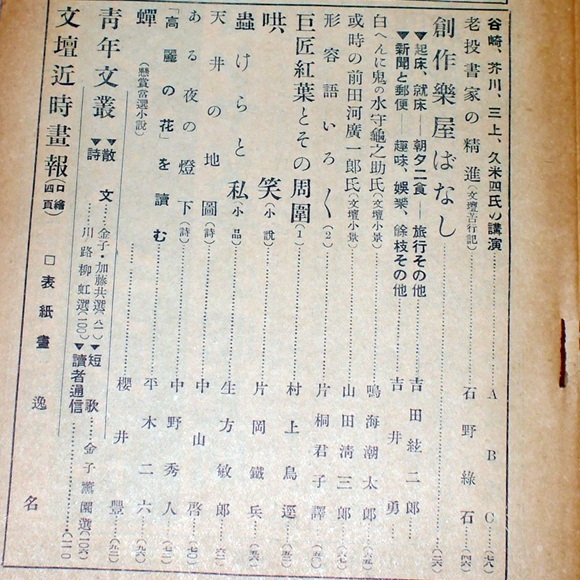 谷崎、芥川、三上、久米四氏の講演……A B C(七八)
老投書家の精進(文壇苦行記)……石野綠石(四六)
創作樂屋ばなし……(二六)
▼起床、就床――朝夕二食――旅行その他……吉田絃二郎
▼新聞と郵便――趣味、娯樂、餘枝その他……吉井勇
白へんに鬼の水守龜之助氏(文壇小景)……鳴海潮太郎
或時の前田河廣一郎氏(文壇小景)……山田淸三郎
形容語いろ〱(2)……片桐君子譯
巨匠紅葉とその周圍(1)……村上鳥逕
哄笑(小說)……片岡鐵兵
蟲けらと私(小品)……生方敏郎
天井の地圖(詩)……中山啓
ある夜の燈下(詩)……中野秀人
「高麗の花」を讀む……平木二六
蟬(懸賞當選小說)……櫻井豐
靑年文叢
▼散文……金子・加藤共選(八一)
▼詩……川路柳虹選(一〇〇)
▼短歌……金子薰園選(一〇六)
▼讀者通信……(一一〇)
文壇近時畫報(口繪四頁)
□表紙畫 逸名